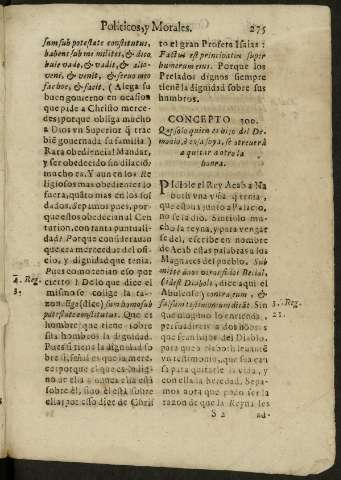 Politicos, y Morales. 275
sum sub potestate constitutus,
habens sub me milites, & dico
huic vade, & vadit, & alio
veni, & venit, & servo meo
fac hoc, & facit. (Alega su
buen govierno en ocasion
que pide a Christo merce-
des; porque obliga mucho
a Dios vn Superior q̃ trae
biē governada su familia)
Rara obediencia! Mandar,
y ser obedecido sin dilaciō;
mucho es. Y aun en los Re
ligiosos mas obedientes lo
fuera, quāto mas en los sol
dados. Sepamos pues, por-
que estos obedecian al Cen
turion, con tanta puntuali-
dad? Porque consideravan
que era mercedas del ofi-
cio, y dignidad que tenia.
Pues como tenian esso por
cierto? De lo que dice el
mismo se colige la ra-
zon. Ego (dice) sum homo sub
potestate constitutus. Que es
hombre que tiene sobre
si
4. Reg.
3.
los hombros la dignidad.
Pues si tiene la dignidad so
bre si, señal es que la mere-
ce; porque el que es indig-
no de ella nunca ella està
sobre èl, sino èl està sobre
ella: por esso dice de Chris
to el gran Profeta Isaias:
Factus est principatus super
humerum eius. Porque los
Prelados dignos siempre
tienē la dignidad sobre sus
hombros.
CONCEPTO 100.
Que solo quien es hijo del De-
monio, à es su espa, se atreverà
a quitar a otro la
honra.
Pidiole el Rey Acab a Na
both vna viña q̃ tenia,
que estava junto a Palacio,
no se la dio. Sintiolo mu-
cho la reyna, y para vengar
se del, escrive en nombre
de Acab estas palabras a los
Magnates del pueblo. Sub
mitte duos viros filios Belial,
(idest Diaboli, dice aqui el
Abulense) contra eum, &
falsum testimonium dicāt Sin
3. Reg.
21.
que ninguno lo entienda
persuadireis a dos hombres
que sean hijos del Diablo,
para que a Naboth levanten
vn testimonio, que sea cau
sa para quitarle la vida, y
con ella la heredad. Sepa-
mos aora que pudo ser la
razon de que la Reyna les
S 2 ad-